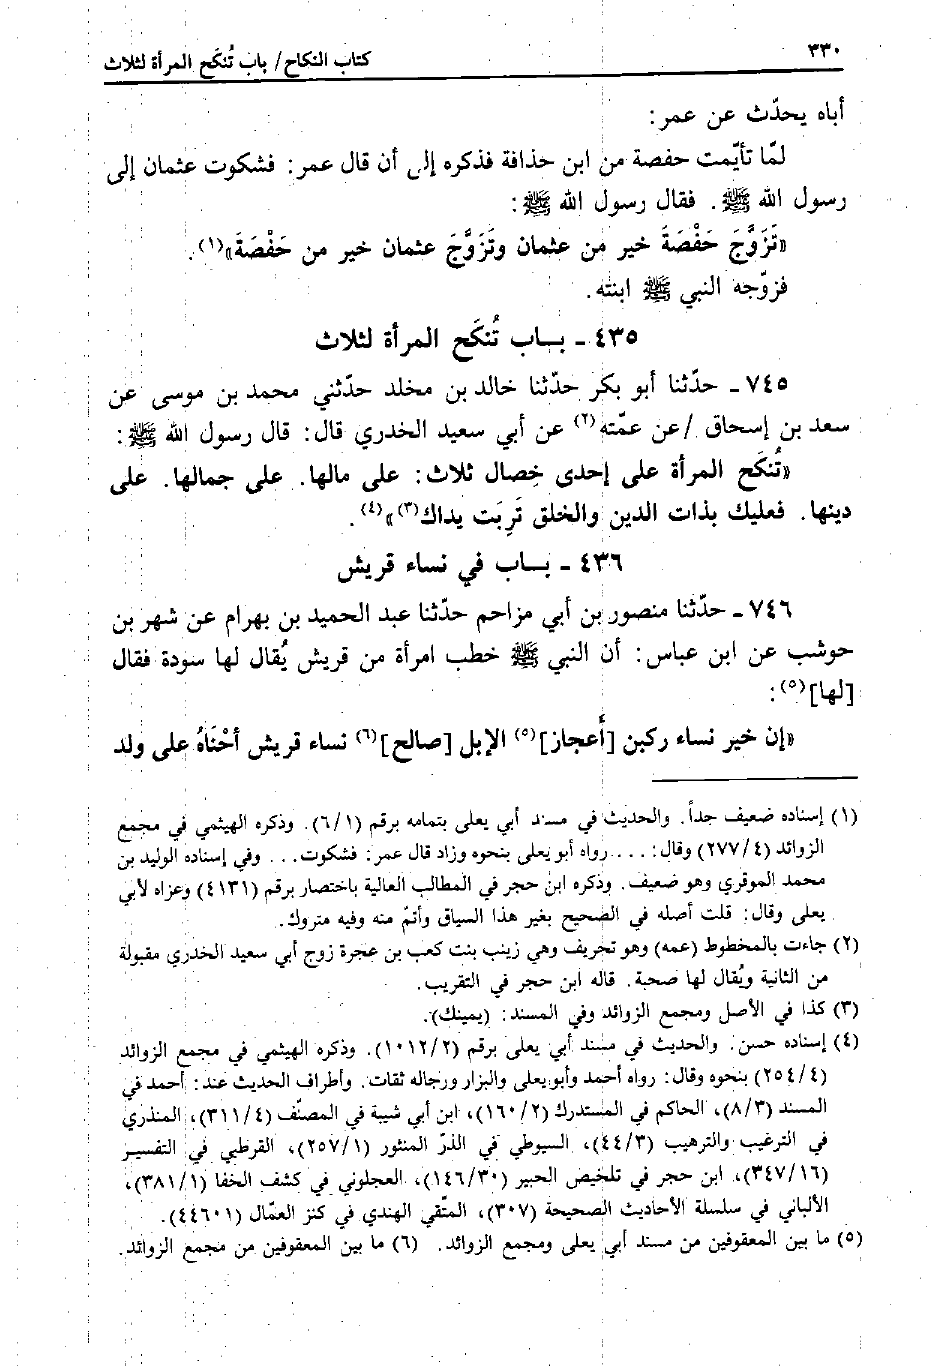 ٣٣٠
كتاب النكاح/ باب تُنكَح المرأة لثلاث
أباه يحدّث عن عمر:
لمّا تأيّمت حفصة من ابن حذافة فذكره إلى أن قال عمر: فشكوت عثمان إلى
رسول الله ﷺ. فقال رسول الله ﷺ:
«تَزَوَّجَ حَفْصَةَ خير من عثمان وتَزَوَّجَ عثمان خير من حَفْصَةَ»(١).
فزوّجه النبي ﷺ ابنته.
٤٣٥ ـ بـاب تُنكَح المرأة لثلاث
٧٤٥ ـ حدّثنا أبو بكر حدّثنا خالد بن مخلد حدّثني محمد بن موسى عن
سعد بن إسحاق /عن عمّته(٢) عن أبي سعيد الخدري قال: قال رسول الله ﷺ:
«تُنكَح المرأة على إحدى خِصال ثلاث: على مالها. على جمالها. على
دينها. فعليك بذات الدين والخلق تَرِبَت يداك(٣)»(٤).
٤٣٦ ـ بـاب في نساء قريش
٧٤٦ ـ حدّثنا منصور بن أبي مزاحم حدّثنا عبد الحميد بن بهرام عن شهر بن
حوشب عن ابن عباس: أن النبي ﷺ خطب امرأة من قريش يُقال لها سودة فقال
[لها](٥):
«إن خير نساء ركبن [أعجاز](٥) الإبل [صالح](٦) نساء قريش أحْنَاهُ على ولد
(١) إسناده ضعيف جداً. والحديث في مسند أبي يعلى بتمامه برقم (٦/١). وذكره الهيثمي في مجمع
الزوائد (٢٧٧/٤) وقال: .... رواه أبو يعلى بنحوه وزاد قال عمر: فشكوت... وفي إسناده الوليد بن
محمد الموقري وهو ضعيف. وذكره ابن حجر في المطالب العالية باختصار برقم (٤١٣١) وعزاه لأبي
يعلى وقال: قلت أصله في الصحيح بغير هذا السياق وأتمّ منه وفيه متروك.
(٢) جاءت بالمخطوط (عمه) وهو تحريف وهي زينب بنت كعب بن عجرة زوج أبي سعيد الخدري مقبولة
من الثانية ويُقال لها صحبة. قاله ابن حجر في التقريب.
(٣) كذا في الأصل ومجمع الزوائد وفي المسند: (يمينك).
(٤) إسناده حسن. والحديث في مسند أبي يعلى برقم (١٠١٢/٢). وذكره الهيثمي في مجمع الزوائد
(٢٥٤/٤) بنحوه وقال: رواه أحمد وأبو يعلى والبزار ورجاله ثقات. وأطراف الحديث عند: أحمد في
المسند (٨/٣)، الحاكم في المستدرك (١٦٠/٢)، ابن أبي شيبة في المصنّف (٣١١/٤)، المنذري
في الترغيب والترهيب (٤٤/٣)، السيوطي في الدرّ المنثور (٢٥٧/١)، القرطبي في التفسير
(٣٤٧/١٦)، ابن حجر في تلخيص الحبير (١٤٦/٣٠)، العجلوني في كشف الخفا (٣٨١/١)،
الألباني في سلسلة الأحاديث الصحيحة (٣٠٧)، المتّقي الهندي في كنز العمّال (٤٤٦٠١).
(٥) ما بين المعقوفين من مسند أبي يعلى ومجمع الزوائد. (٦) ما بين المعقوفين من مجمع الزوائد.